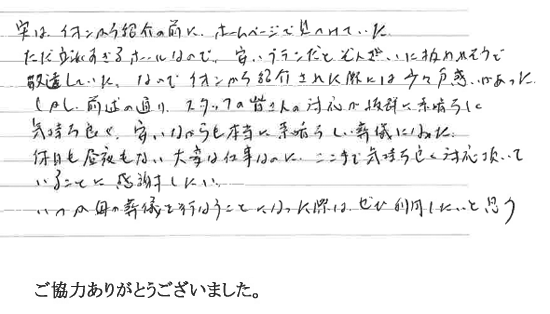 実は イオンから紹介の前に、ホームページで見つけていた。
ただ立派すぎるホールなので、安いプランだとぞんざいに扱われそうで
敬遠していた。なのでイオンから紹介された際には少々戸惑いがあった
しかし、前述の通り、スタッフの皆さんの対応が抜群に素晴らしく
気持ち良く、安いながらも本当に素晴らしい葬儀になった。
休日も昼夜もない大変な仕事なのに、ここまで気持ち良く対応頂いて
いることに感謝したい。
いつか母の葬儀を行なうことになった際は、ぜひ利用したいと思う
ご協力ありがとうございました。